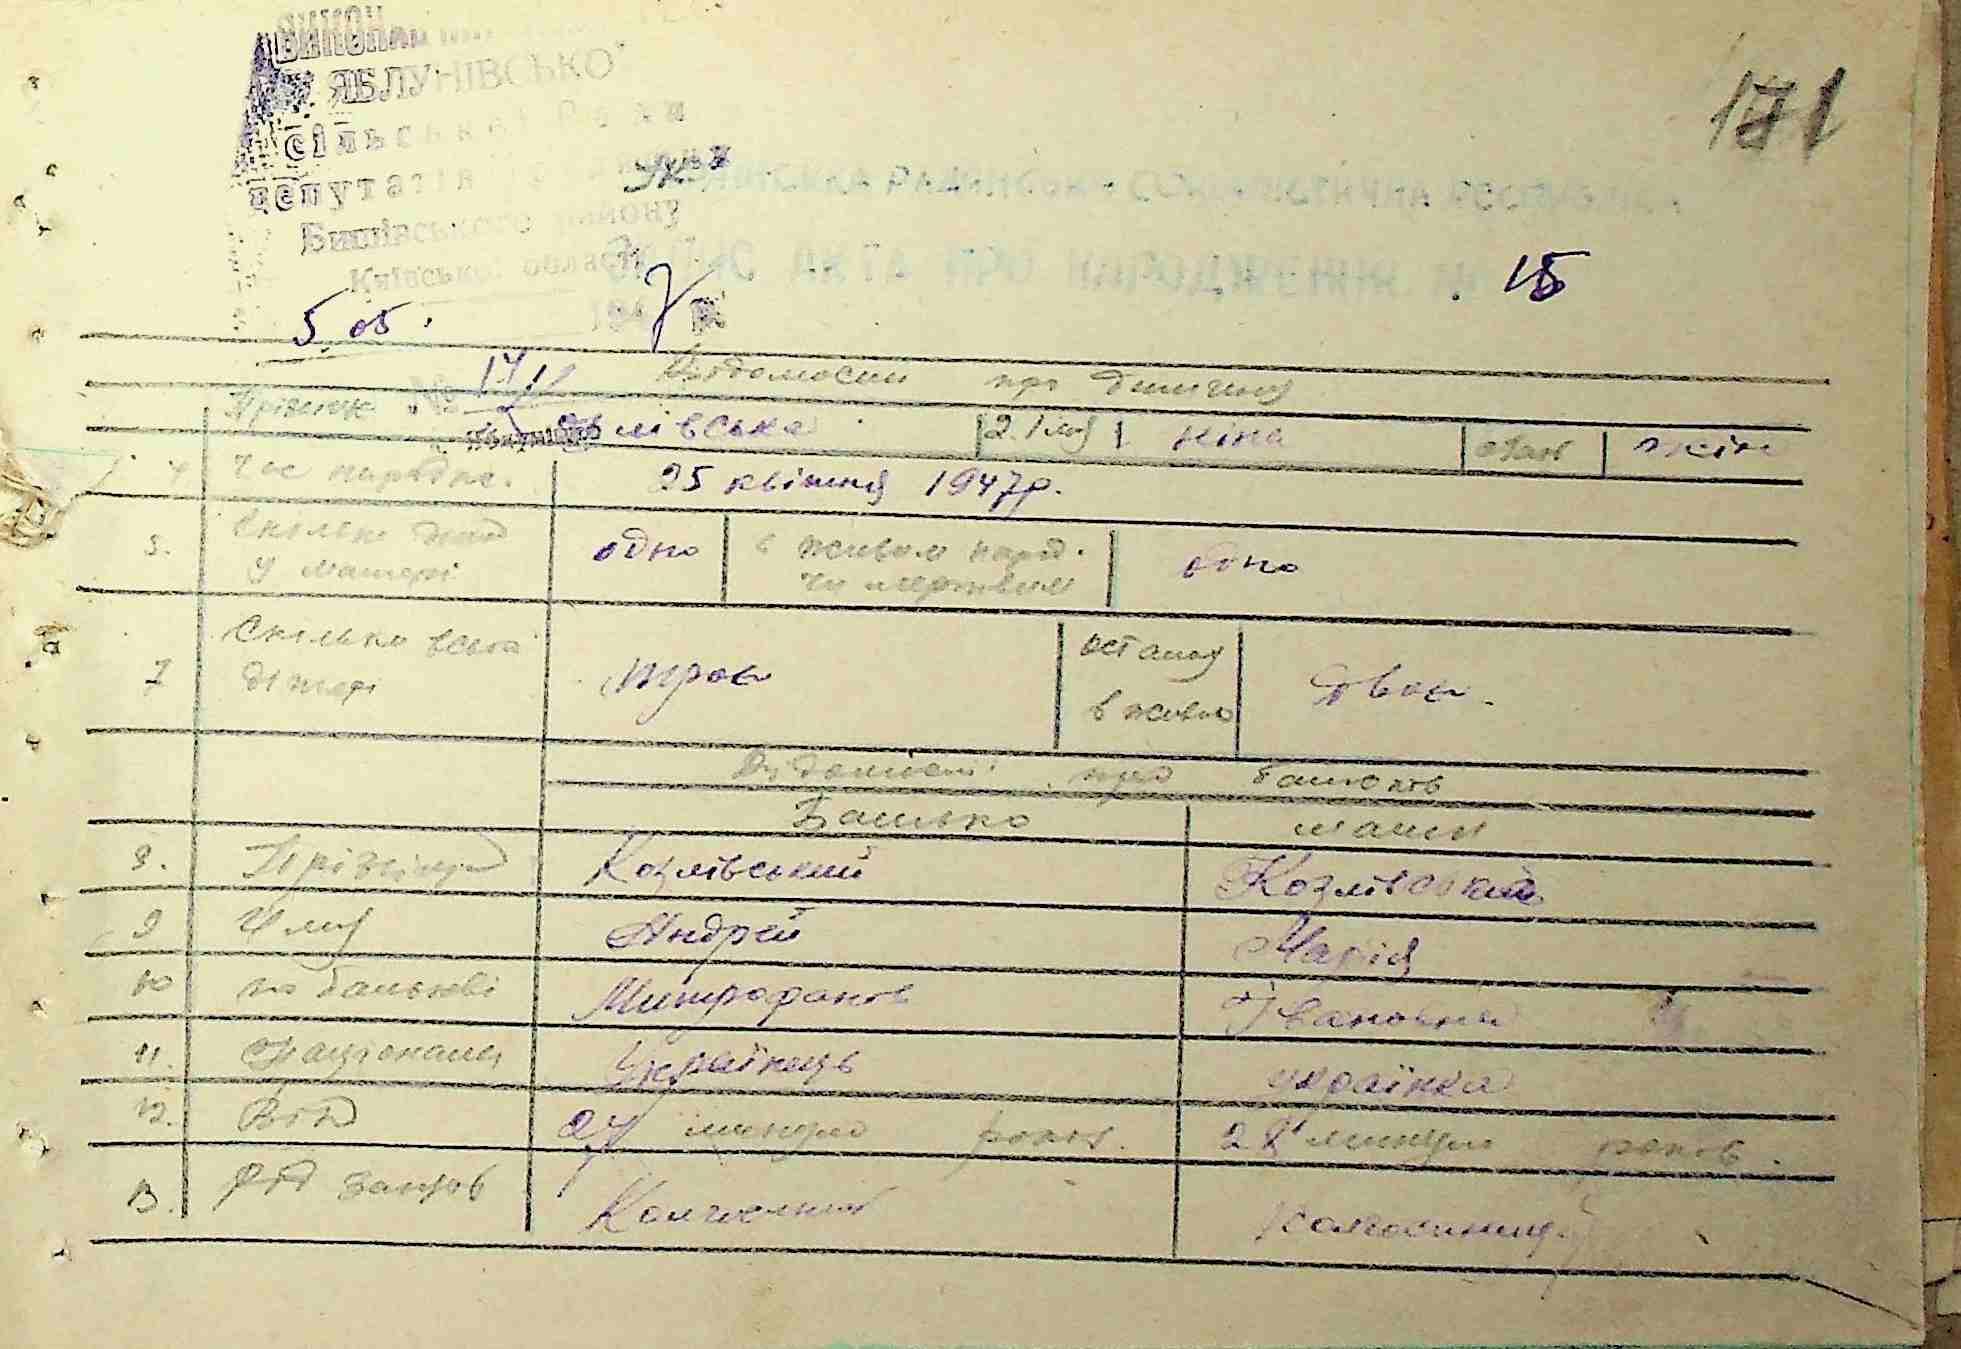 171
ВИКОН
ЯБЛУНІВСЬКО
сільської Ради
депутатів
Бишівського району
Київської області
УКРАЇНСЬКА РАДЯНСЬКА СОЦІАЛІСТИЧНА РЕСПУБЛІКА
ЗАПИС АКТА ПРО НАРОДЖЕННЯ № 15
5.05. 194 7 р.
№ 17
Відомости про дитину
Прізвищ 2. Імя Ніна стать жін
4 Час народже. 25 квітня 1947р.
5. Скільки дітей у матері одно 6 живим народ. чи мертвим одно
7 Скільки всього дітей троє осталос в живих двоє.
Відомості про батьків
Батько мати
8. Прізвище Козлівський Козлівськ
9 Імя Андрей Марія
10 по батькові Митрофанов Івановна
11. Націонали Українець українка
12. Вік 27 минуло років. 28 минуло років.
13. Рід занять Колгосник Колгосниця